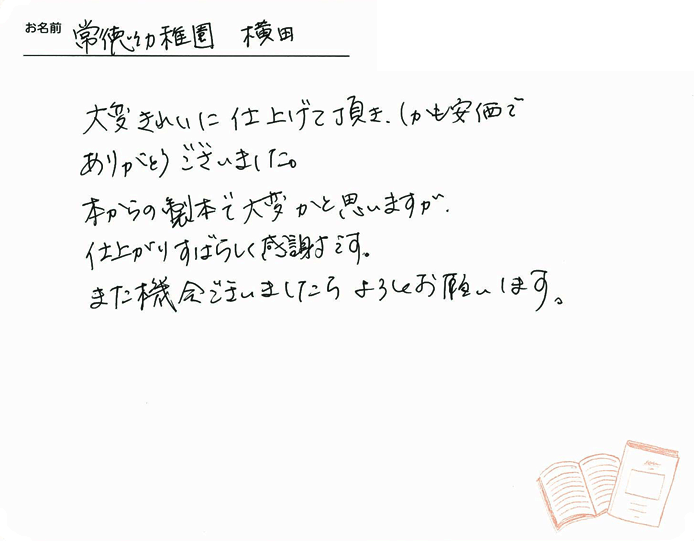 お名前 常徳幼稚園 横田
大変きれいに仕上げて頂き、しかも安価で
ありがとうございました。
本からの製本で大変かと思いますが、
仕上がりすばらしく感謝です。
また機会ございましたらよろしくお願いします。